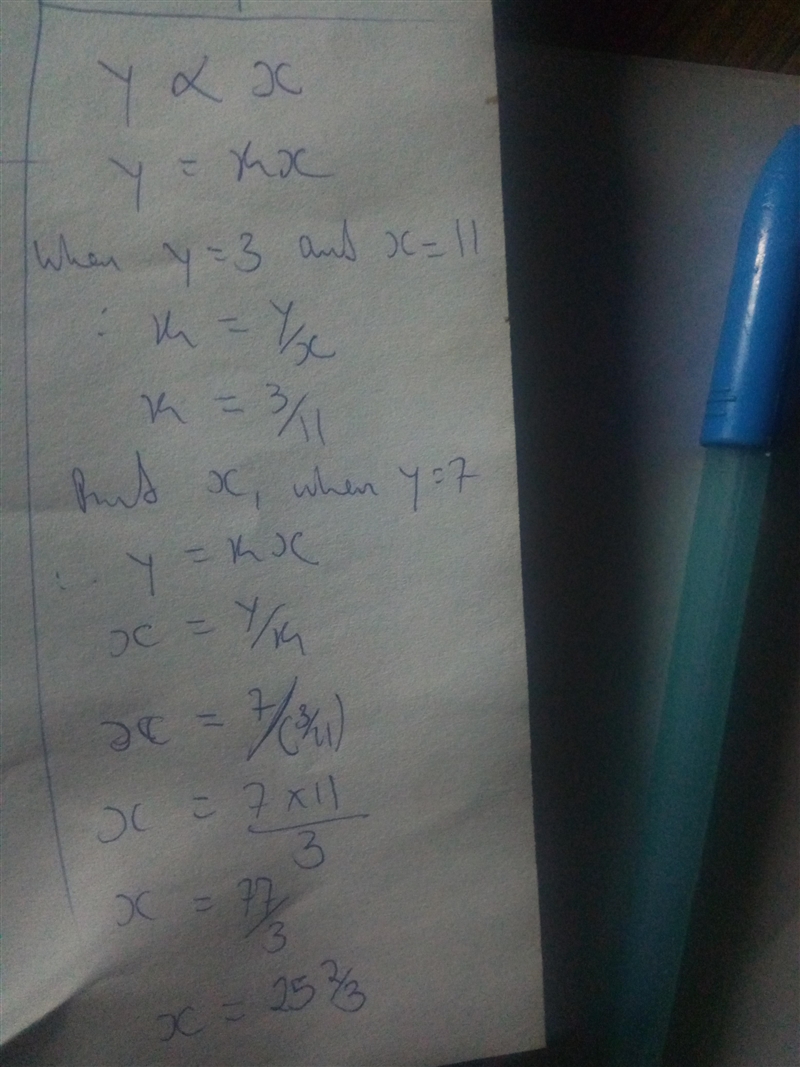 y ∝ x
y = kx
When y = 3 and x = 11
∴ k = y/x
k = 3/11
Find x, when y = 7
∴ y = kx
x = y/k
x = 7/(3/11)
x = 7 × 11 / 3
x = 77/3
x = 25 2/3